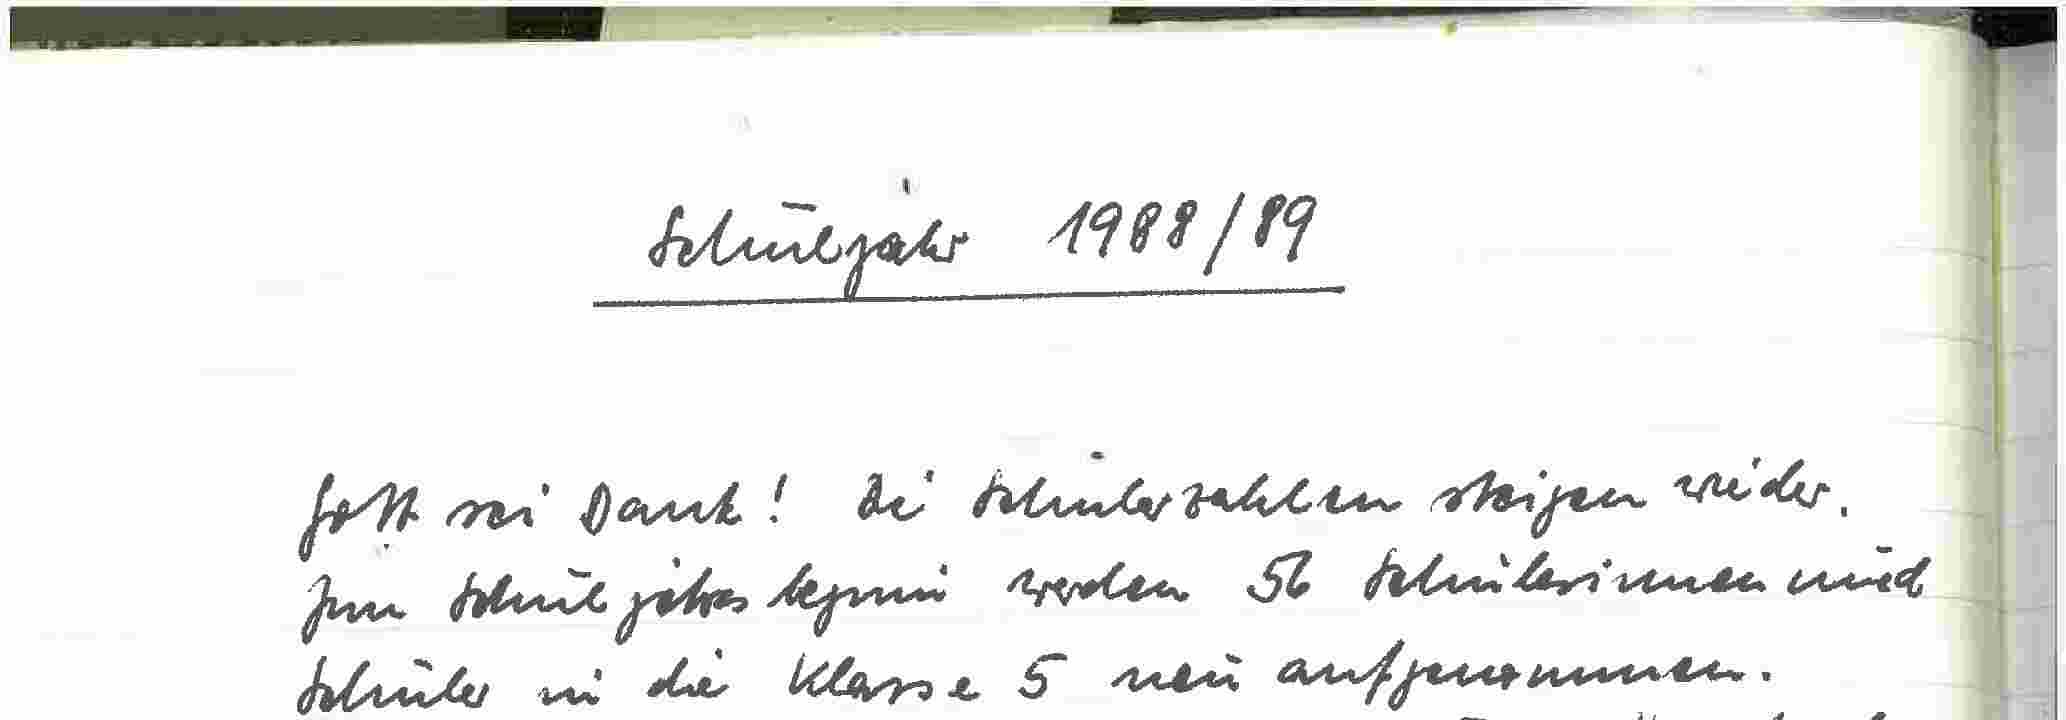 Schuljahr 1988/89
Gott sei Dank! Die Schülerzahlen steigen wieder.
Zum Schuljahresbeginn werden 56 Schülerinnen und
Schüler in die Klasse 5 neu aufgenommen.